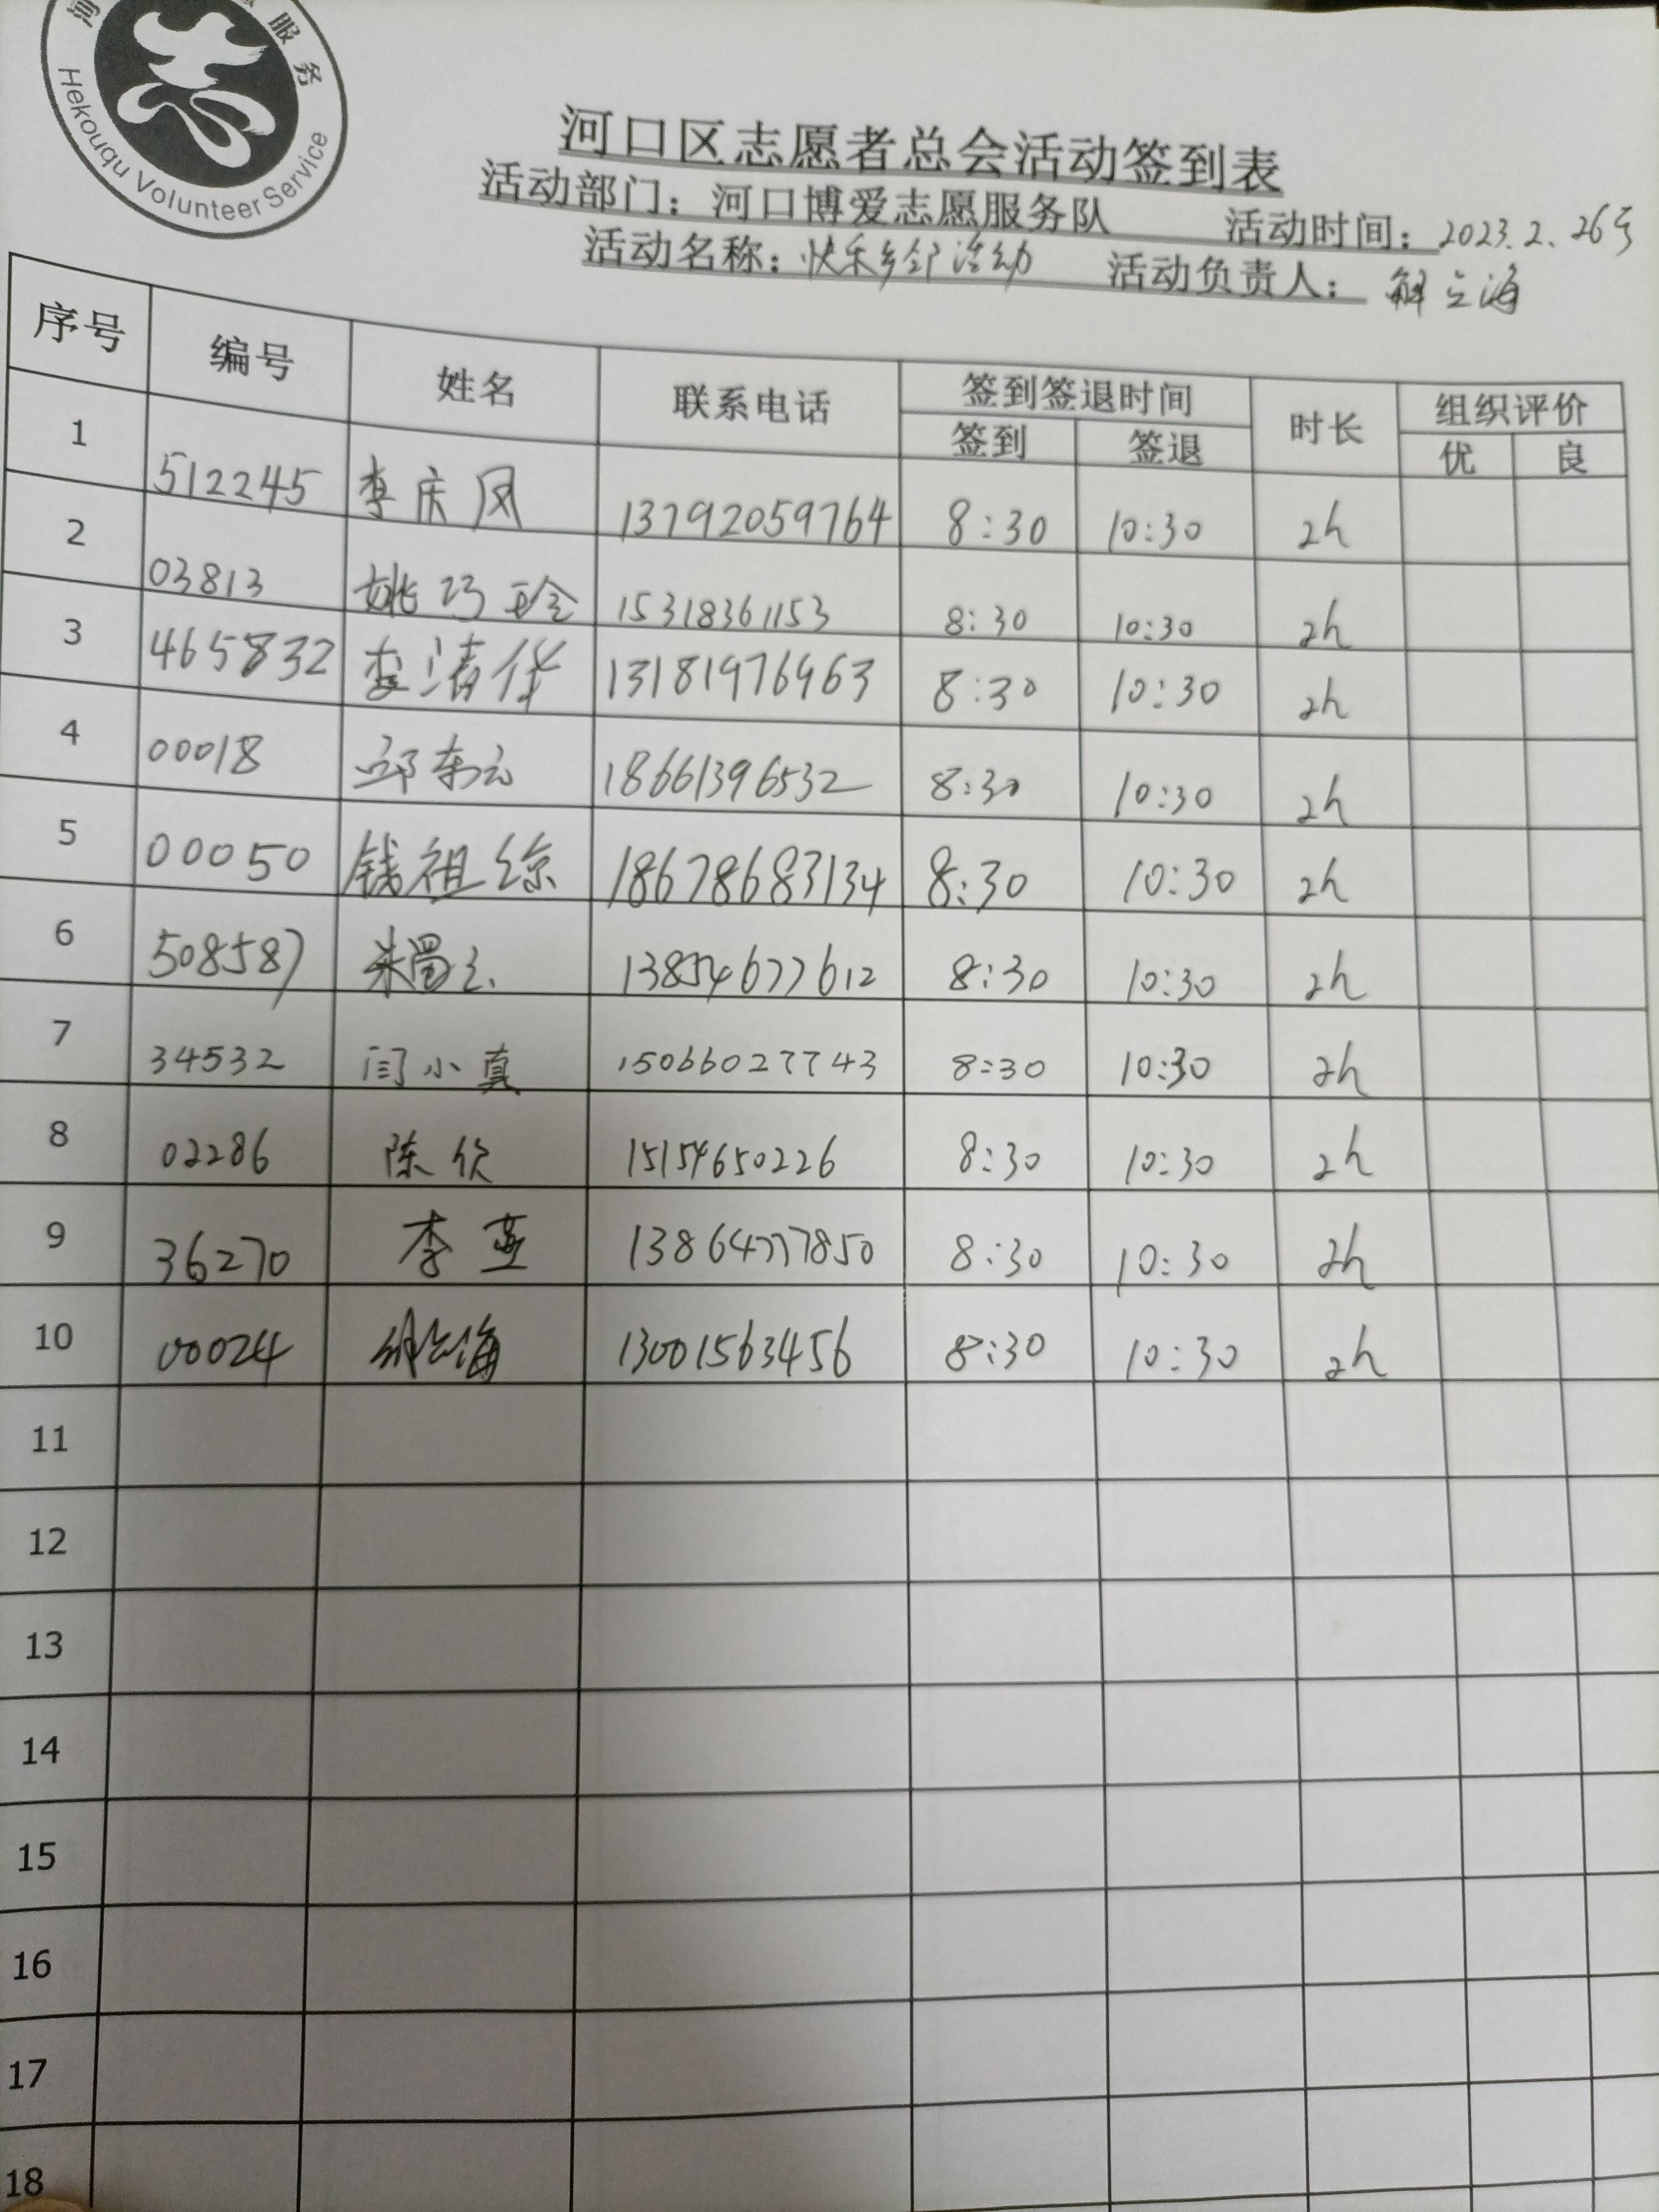 河 服务
Hekouqu Volunteer Service
河口区志愿者总会活动签到表
活动部门：河口博爱志愿服务队 活动时间：2023.2.26号
活动名称：快乐乡邻活动 活动负责人：解立海
序号 编号 姓名 联系电话 签到签退时间 时长 组织评价
签到 签退 优 良
1 512245 李庆凤 13792059764 8:30 10:30 2h
2 03813 姚巧玲 15318361153 8:30 10:30 2h
3 465832 李清华 13181976963 8:30 10:30 2h
4 00018 邱东云 18661396532 8:30 10:30 2h
5 00050 钱祖综 18678683134 8:30 10:30 2h
6 508587 13854677612 8:30 10:30 2h
7 34532 闫小真 15066027743 8:30 10:30 2h
8 02286 陈欣 15154650226 8:30 10:30 2h
9 36270 李燕 13864777850 8:30 10:30 2h
10 00024 解立海 13001563456 8:30 10:30 2h
11
12
13
14
15
16
17
18